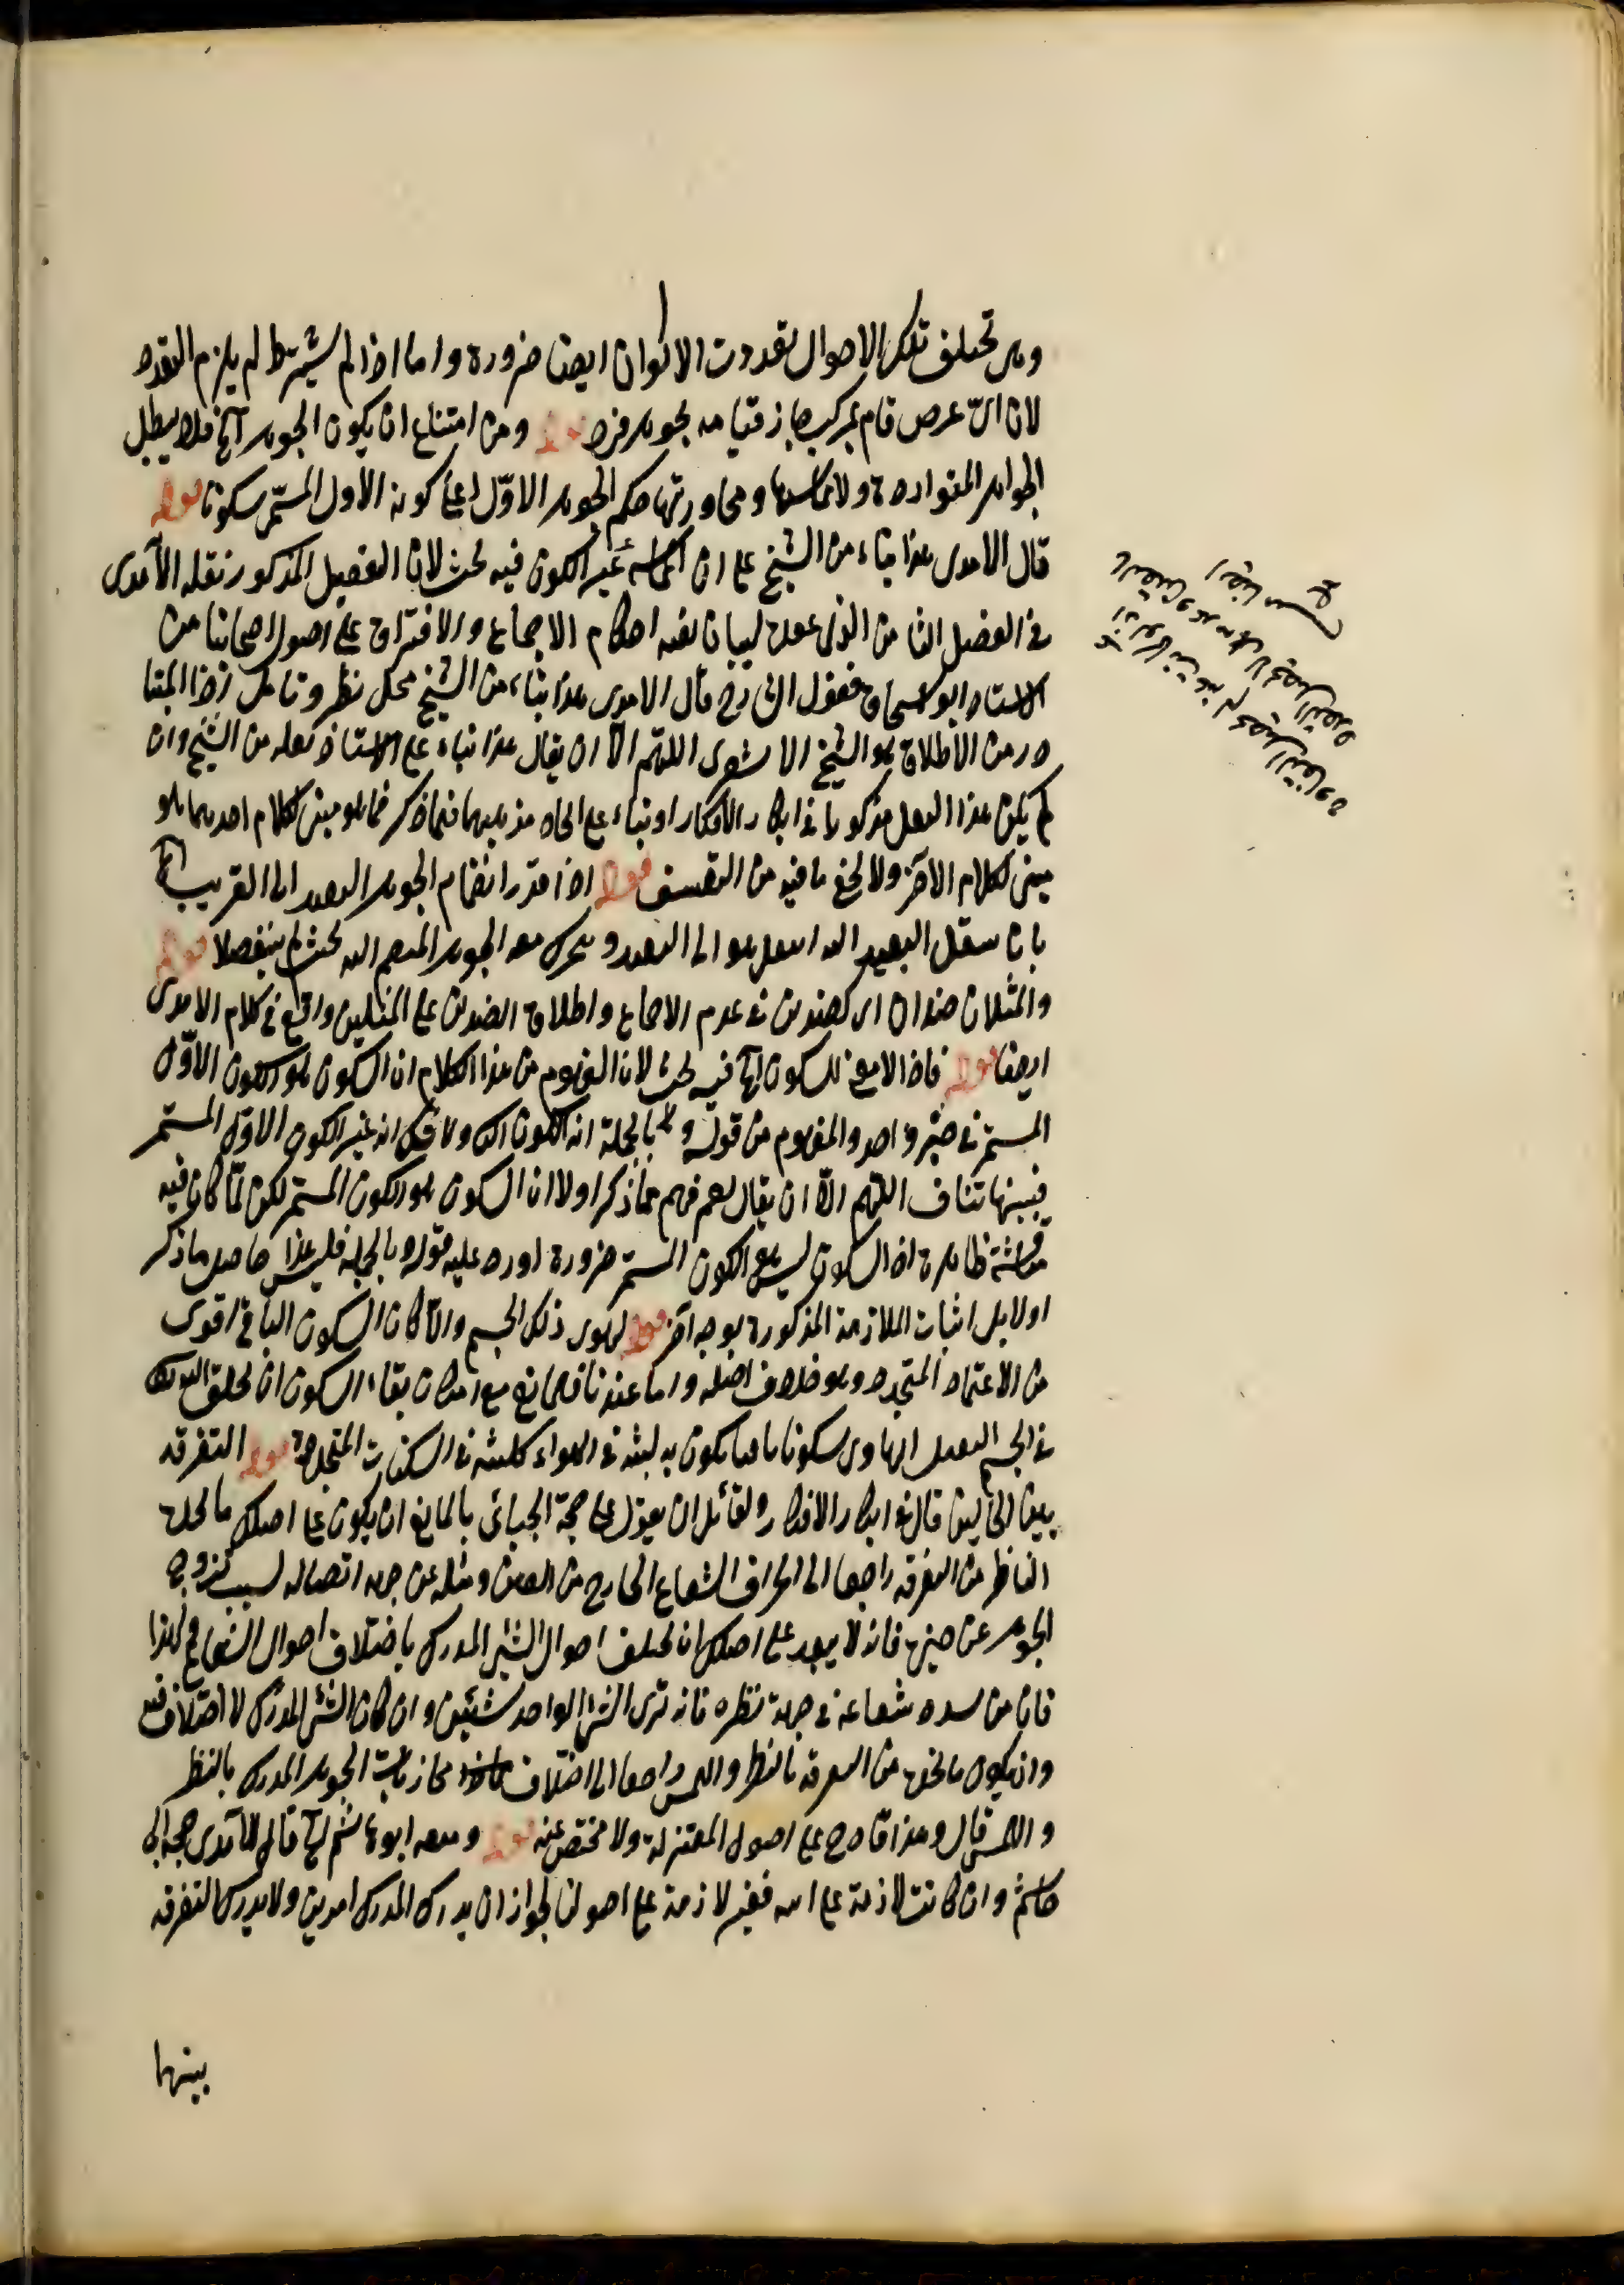 تختلف تلك الاحوال تعددت الاكوان ايضا ضرورة واما اذا لم يشترط لم يلزم التعدد
لان اىّ عرض قام بمركب جاز قيامه بجوهر فرد قوله ومن امتناع ان يكون الجوهر آخ فلا يبطل
الجواهر المتواردة ولا ومجاورتها حكم الجوهر الاوّل اعنى كونه الاول المستمر سكونا قوله
قال الامدى هذا بناء من الشيخ على ان المماسة غير الكون فيه بحث لان التفصيل المذكور نقله الآمدى
فى الفصل الثامن الذى عقده لبيان احكام الاجتماع والافتراق على اصول اصحابنا من
الاستاد ابو اسحاق فقول الشارح قال الامدى هذا بناء من الشيخ محل نظر وتأمل اذ المتبا
در من الاطلاق هو الشيخ الاشعرى اللهم الا ان يقال هذا بناء على الاستاذ نقله من الشيخ وان
لم يكن هذا النقل مذكورا فى ابكار الافكار او بناء على اتحاد مذهبيهما فيما ذكر فما هو مبنى لكلام احدهما هو
مبنى لكلام الآخر ولا يخفى ما فيه من التعسف قوله اذا قدر انضمام الجوهر البعيد الى القريب
بان ينتقل البعيد اليه او الى البعيد ويتحرك معه الجوهر المنضم اليه بحيث لم ينفصلا قوله
والمثلان ضدان اى كضدين فى عدم الاجتماع واطلاق الضدين على المثلين واقع فى كلام الامدى
ايضا قوله فاذا لا معنى للسكون آخ فيه بحث لان المفهوم من هذا الكلام ان السكون هو الكون الاوّل
المستمر فى حيّز واحد والمفهوم من قوله وبالجملة انه الكون الثانى ولا شك انه غير الكون الاوّل المستمر
فبينهما تناف اللهم الا ان يقال نعم فهم مما ذكر اولا ان السكون هو الكون المستمر لكن لمّا كان فيه
مناقشة ظاهرة اذ السكون ليس هو الكون المستمر ضرورة اورد عليه قوله بالجملة فليس هذا حاصل ما ذكر
اولا بل اثبات الملازمة المذكورة بوجه آخر قوله لهوى ذلك الجسم والا كان السكون الباقى اقوى
من الاعتماد المتجدد وهو خلاف اصله واما عندنا فلا مانع مع امكان بقاء السكون ان يخلق الله
فى الجسم الثقيل الهاوى سكونا باقيا يكون به لبثه فى الهواء كلبثه فى السكنات المتجددة قوله التفرقه
بين الحالين قال فى ابكار الافكار ولقائل ان يقول على حجة الجبائى ما المانع ان يكون على اصلك ما يجده
الناظر من التفرقه راجعا الى انحراف الشعاع الخارج من العين وميله عن جهة اتصاله بسبب خروج
الجوهر عن حيزه فانه لا يبعد على اصلك ان تختلف احوال الشئ المدرك باختلاف احوال الشعاع ولهذا
فان من شعاعه فى جهة نظره فانه يرى الشئ الواحد شيئين وان كان الشئ المدرك لا اختلاف فيه
وان يكون ما يجده من التفرقه بالنظر واللمس راجعا الى اختلاف محاذيات الجوهر المدرك بالنظر
واللمس قال وهذا قادح على اصول المعتزلة ولا مخلص عنه قوله ومنعه ابو هاشم آخ قال الآمدى حجة ابى
هاشم وان كانت لازمة على ابيه فغير لازمة على اصولنا لجواز ان يدرك المدرك امرين ولا يدرك التفرقه
بينهما